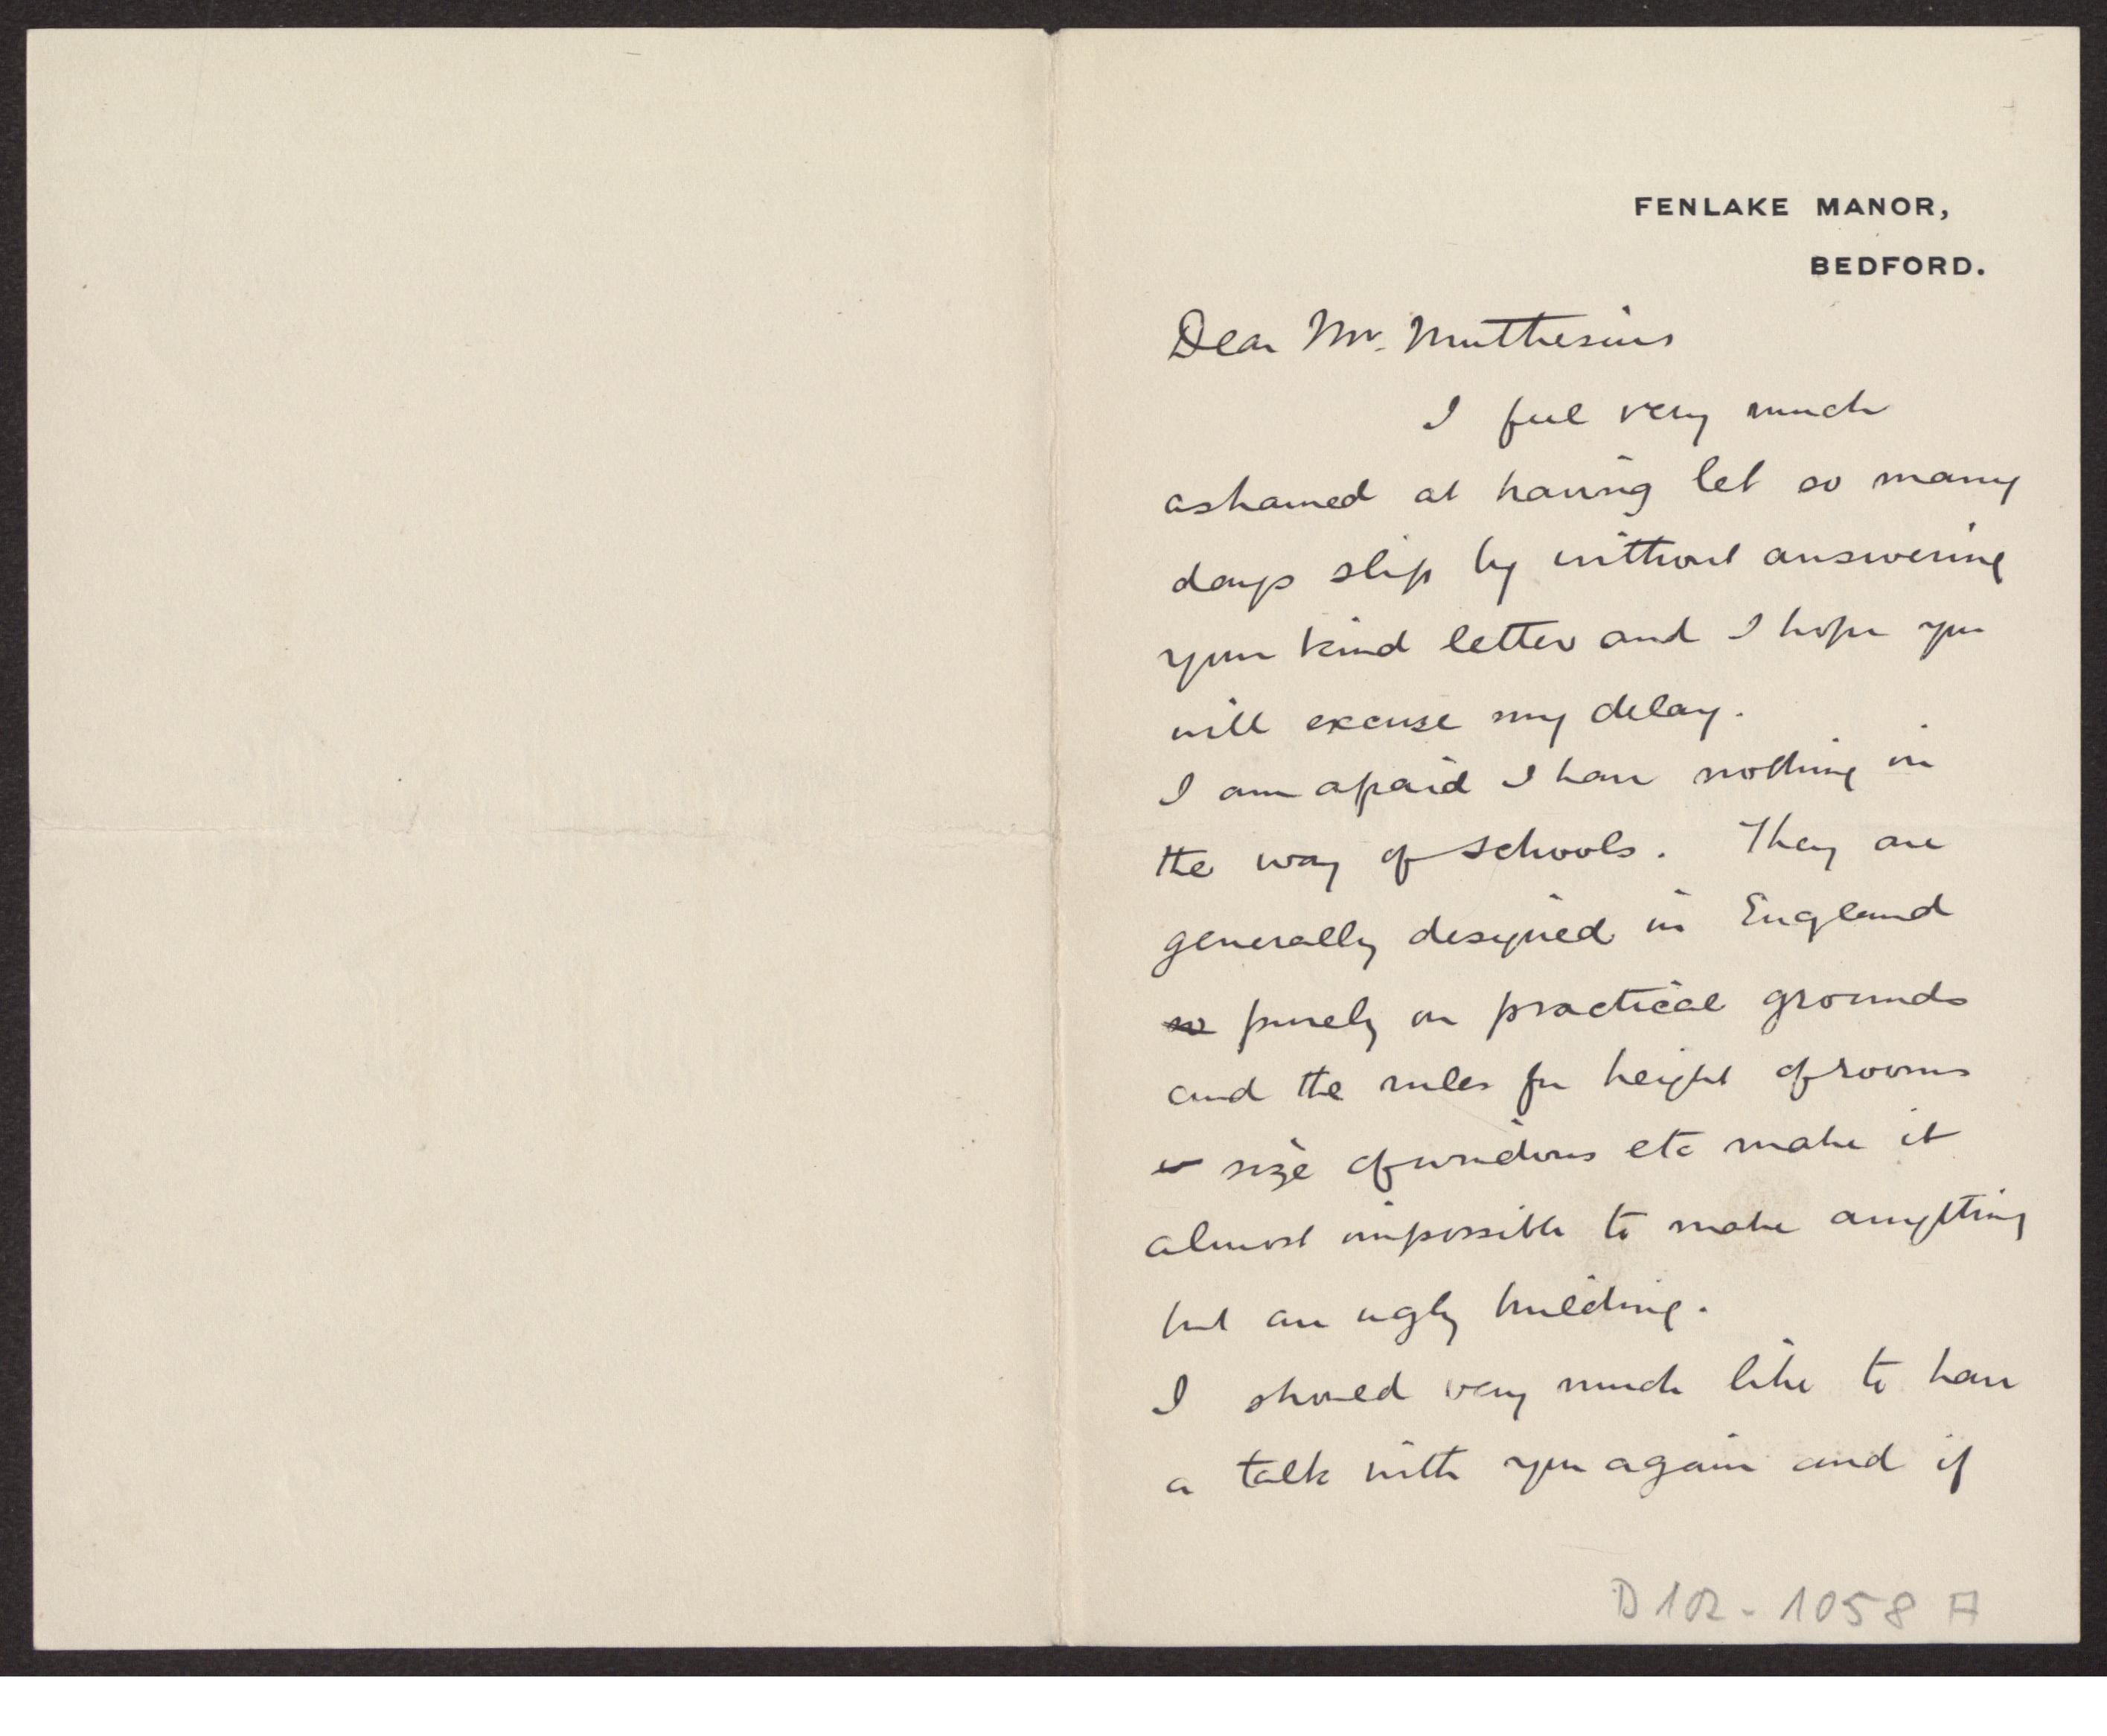 FENLAKE MANOR,
BEDFORD.
Dear Mr. Muthesius
I feel very much
ashamed at having let so many
days slip by without answering
your kind letter and I hope you
will excuse my delay.
I am afraid I have nothing in
the way of schools. They are
generally designed in England
purely on practical grounds
and the rules for height of rooms
size of windows etc make it
almost impossible to make anything
but an ugly building.
I should very much like to have
a talk with you again and if
D 102-1058 A